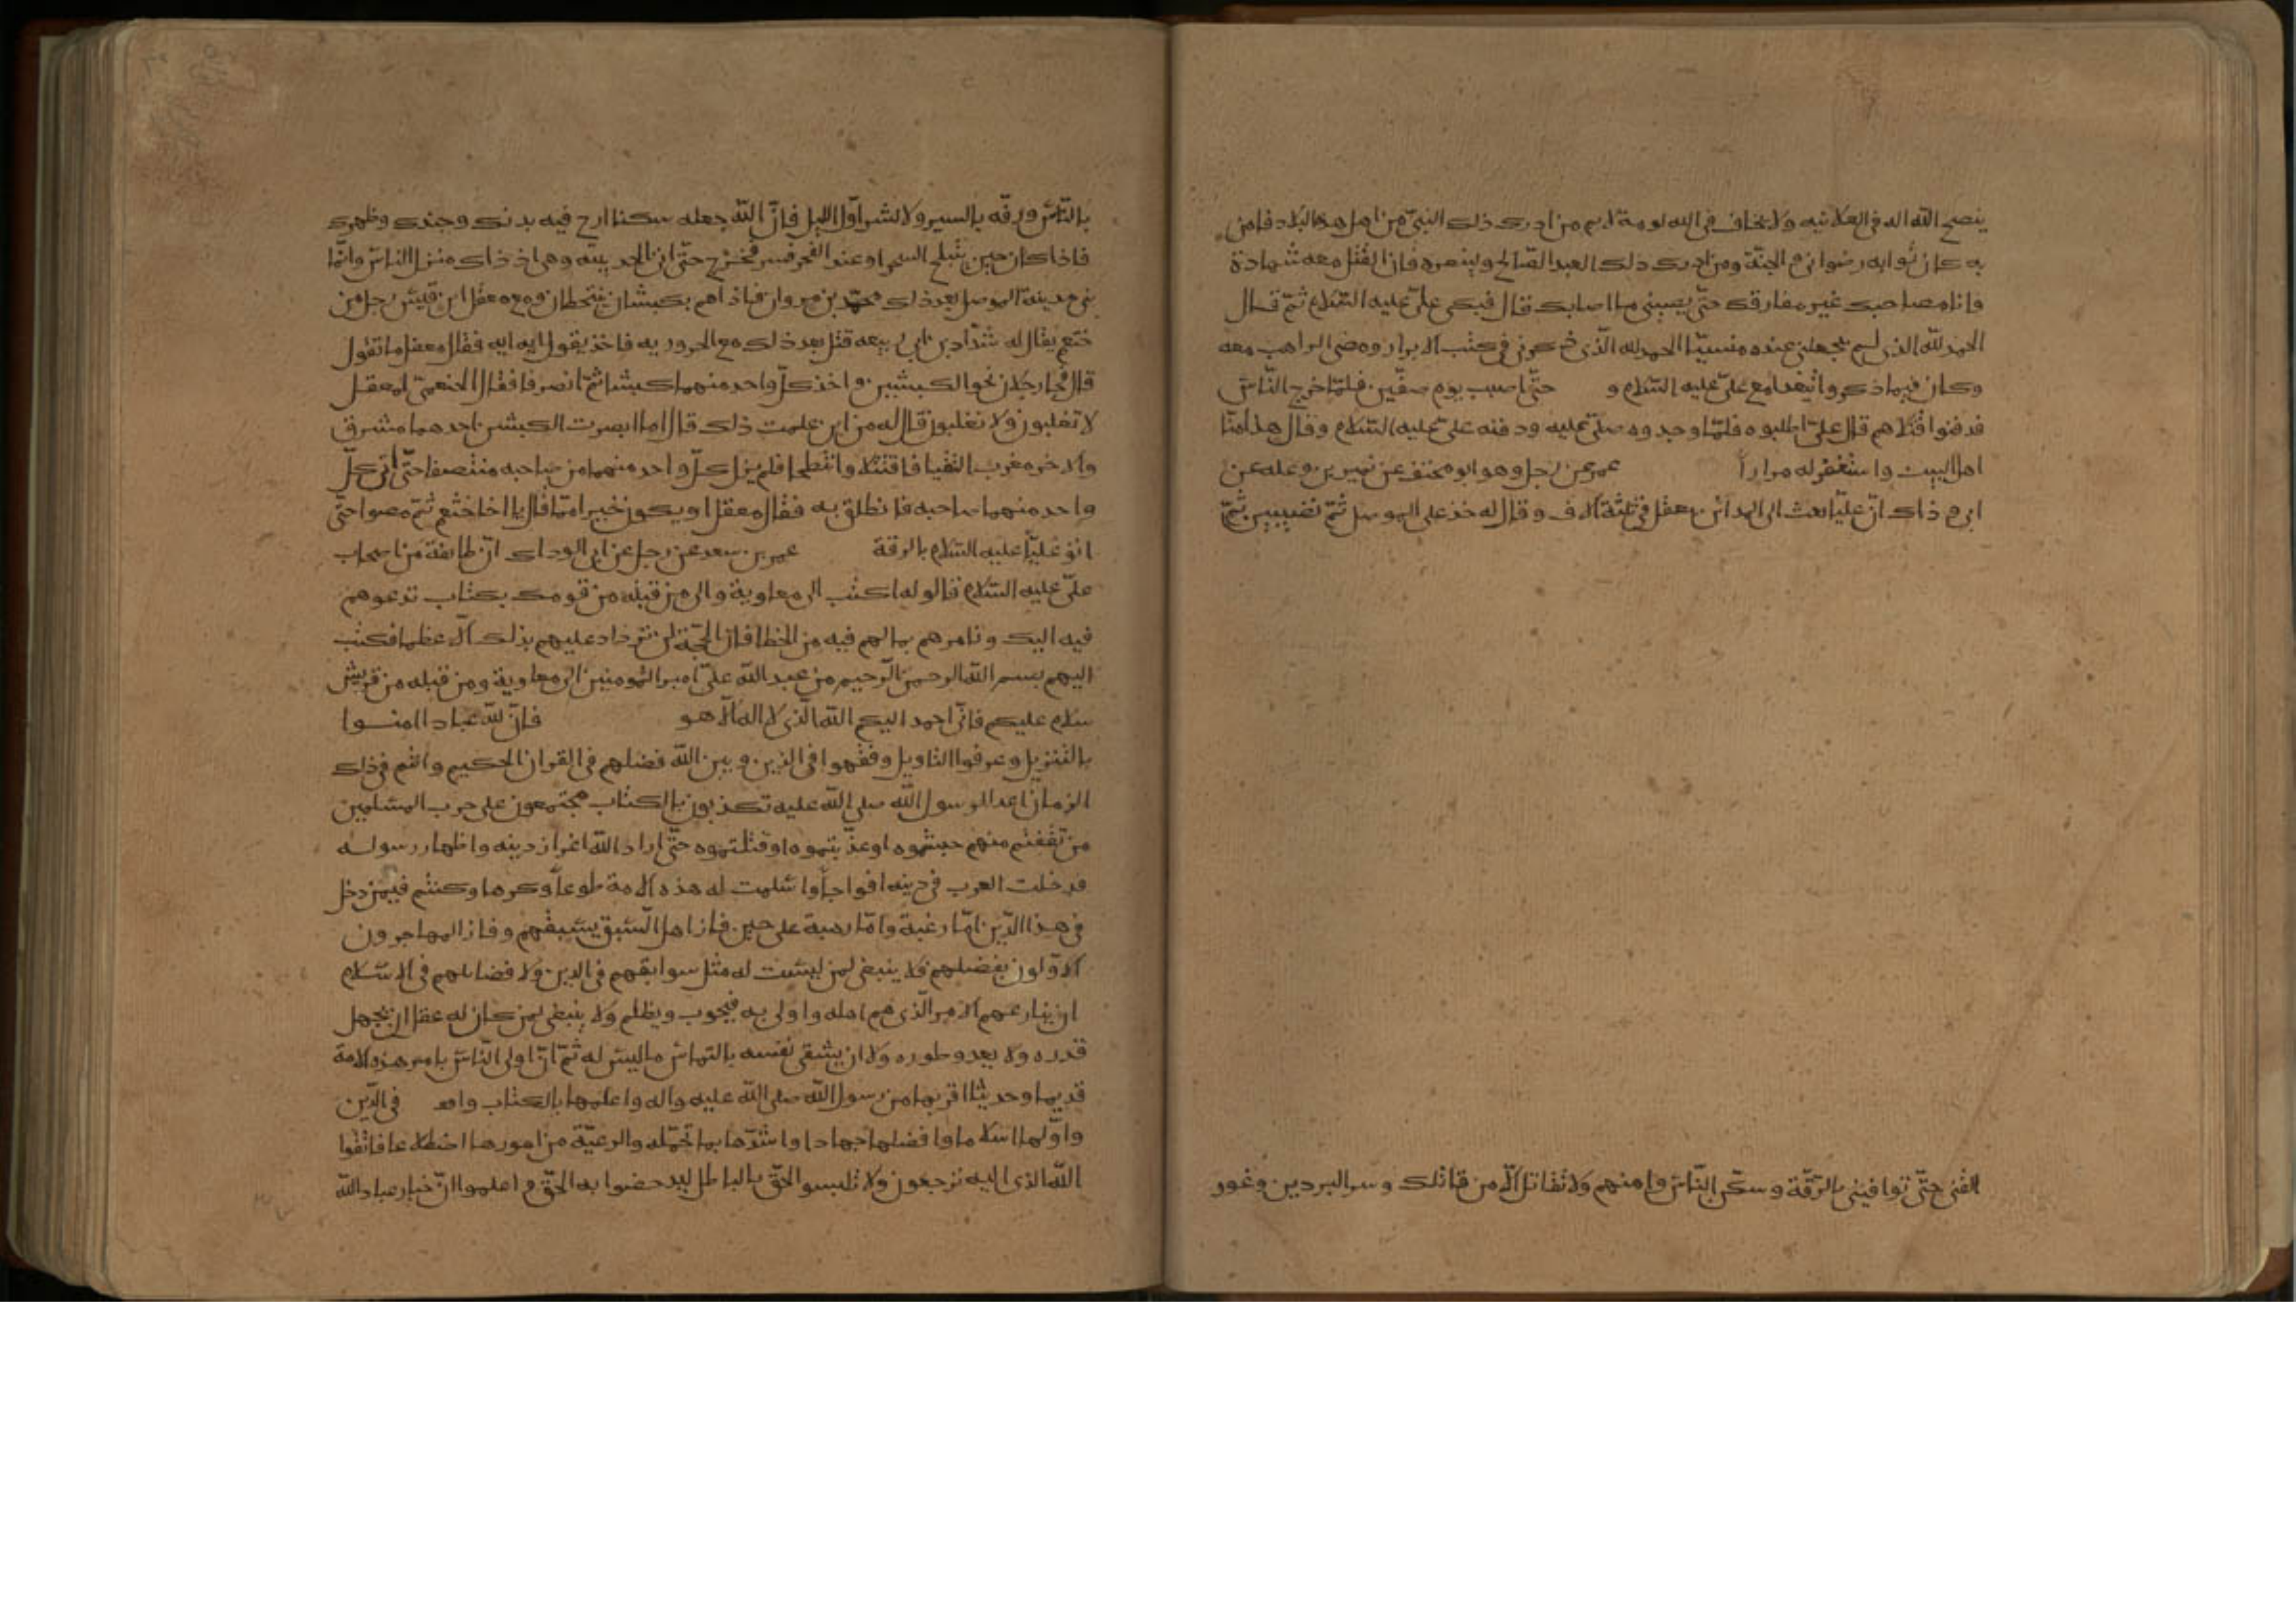 ينصح الله اله في العلانيه ولا يخاف في الله لومة لايم من ادرك ذلك النبيّ من اهل هذه البلاد فامن
به كان ثوابه رضواني و الجنّة ومن ادرك ذلك العبد الصّالح ولينصره فان القتل معه شهادة
وانا مصاحبك غير مفارقك حتّى يصيبني ما اصابك قال فبكى عليّ عليه السّلام ثمّ قال
الحمد لله الذي لم يجعلني عنده منسيّا الحمد لله الّذي ذكرني في كتب الابرار ومضى الراهب معه
وكان فيما ذكروا يتغدا مع عليّ عليه السّلام و حتّى اصيب يوم صفّين فلمّا خرج النّاس
فدفنوا قتلاهم قال عليّ اطلبوه فلمّا وجدوه صلّى عليه ودفنه عليّ عليه السّلام وقال هذا منّا
اهل البيت واستغفر له مراراً عمر عن رجل وهو ابو مخنف عن نمير بن وعله عن
ابي و ذاك انّ عليّا بعث الى المدائن معقل في ثلثة آلاف وقال له خذ على الموصل ثمّ نصيبين ثمّ
القني حتّى توافيني بالرّقة وسكّن النّاس وامنهم ولا تقاتل الّا من قاتلك وسر البردين وغور
بالنّاس ورفّه بالسير ولا تسر اوّل الليل فانّ الله جعله سكنا ارح فيه بدنك وجندك وظهرك
فاذا كان حين ينبلج السحر او عند الفجر فسر فخرج حتّى اتى الحديثه وهي اذ ذاك منزل الناس وانّما
بنى مدينة الموصل بعد ذلك محمّد بن مروان فاذا هم بكبشان ينتطحان ومع معقل ابن قيس رجل من
خثعم يقال له شدّاد بن ابي ربيعه قتل بعد ذلك مع الحروريه فاخذ يقول ايه ايه فقال معقل ما تقول
قال فجا رجلان نحو الكبشين واخذ كلّ واحد منهما كبشا ثمّ انصرفا فقال الخثعميّ لمعقل
لا تغلبون ولا تغلبون قال له من اين علمت ذلك قال اما ابصرت الكبشين احدهما مشرق
والاخر مغرب التقيا فاقتتلا وانتطحا فلم يزل كلّ واحد منهما من صاحبه منتصفا حتّى اتى كلّ
واحد منهما صاحبه فانطلق به فقال معقل او يكون خيرا ممّا قال يا اخا خثعم ثمّ مضوا حتّى
اتو عليّا عليه السّلام بالرقة عمر بن سعد عن رجل عن ابي الوداك انّ طائفة من اصحاب
عليّ عليه السّلام قالو له اكتب الى معاوية والى من قبله من قومك بكتاب تدعوهم
فيه اليك وتامرهم بما لهم فيه من الخطا فان الحجّة لن تزداد عليهم بذلك الّا عظما فكتب
اليهم بسم الله الرحمن الرّحيم من عبد الله عليّ امير المومنين الى معاوية ومن قبله من قريش
سلام عليكم فانّي احمد اليكم الله الّذي لا اله الّا هو فانّ لله عبادا امنوا
بالتنزيل وعرفوا التاويل وفقهوا في الدّين و بين الله فضلهم في القران الحكيم وانتم في ذلك
الزمان اعدا لرسول الله صلى الله عليه تكذبون بالكتاب مجتمعون على حرب المسلمين
من ثقفتم منهم حبستموه او عذّبتموه او قتلتموه حتّى اراد الله اعزاز دينه واظهار رسوله
فدخلت العرب في دينه افواجاً واسلمت له هذه الامة طوعاً وكرها وكنتم فيمن دخل
في هذا الدّين امّا رغبة وامّا رهبة على حين فاز اهل السّبق بسبقهم وفاز المهاجرون
الاوّلون بفضلهم فلا ينبغي لمن ليست له مثل سوابقهم في الدين ولا فضايلهم في الاسلام
ان ينازعهم الامر الّذي هم اهله واولى به فيحوب ويظلم ولا ينبغي لمن كان له عقل ان يجهل
قدره ولا يعدو طوره ولا ان يشقي نفسه بالتماس ما ليس له ثمّ انّ اولى النّاس بامر هذه الامة
قديما وحديثا اقربها من رسول الله صلى الله عليه واله واعلمها بالكتاب في الدّين
واوّلها اسلاما وافضلها جهادا واشدّها بما تحمّله والرعيّة من امورها اضطلاعا فاتّقوا
الله الذي اليه ترجعون ولا تلبسو الحقّ بالباطل ليدحضوا به الحقّ و اعلموا انّ خيار عباد الله